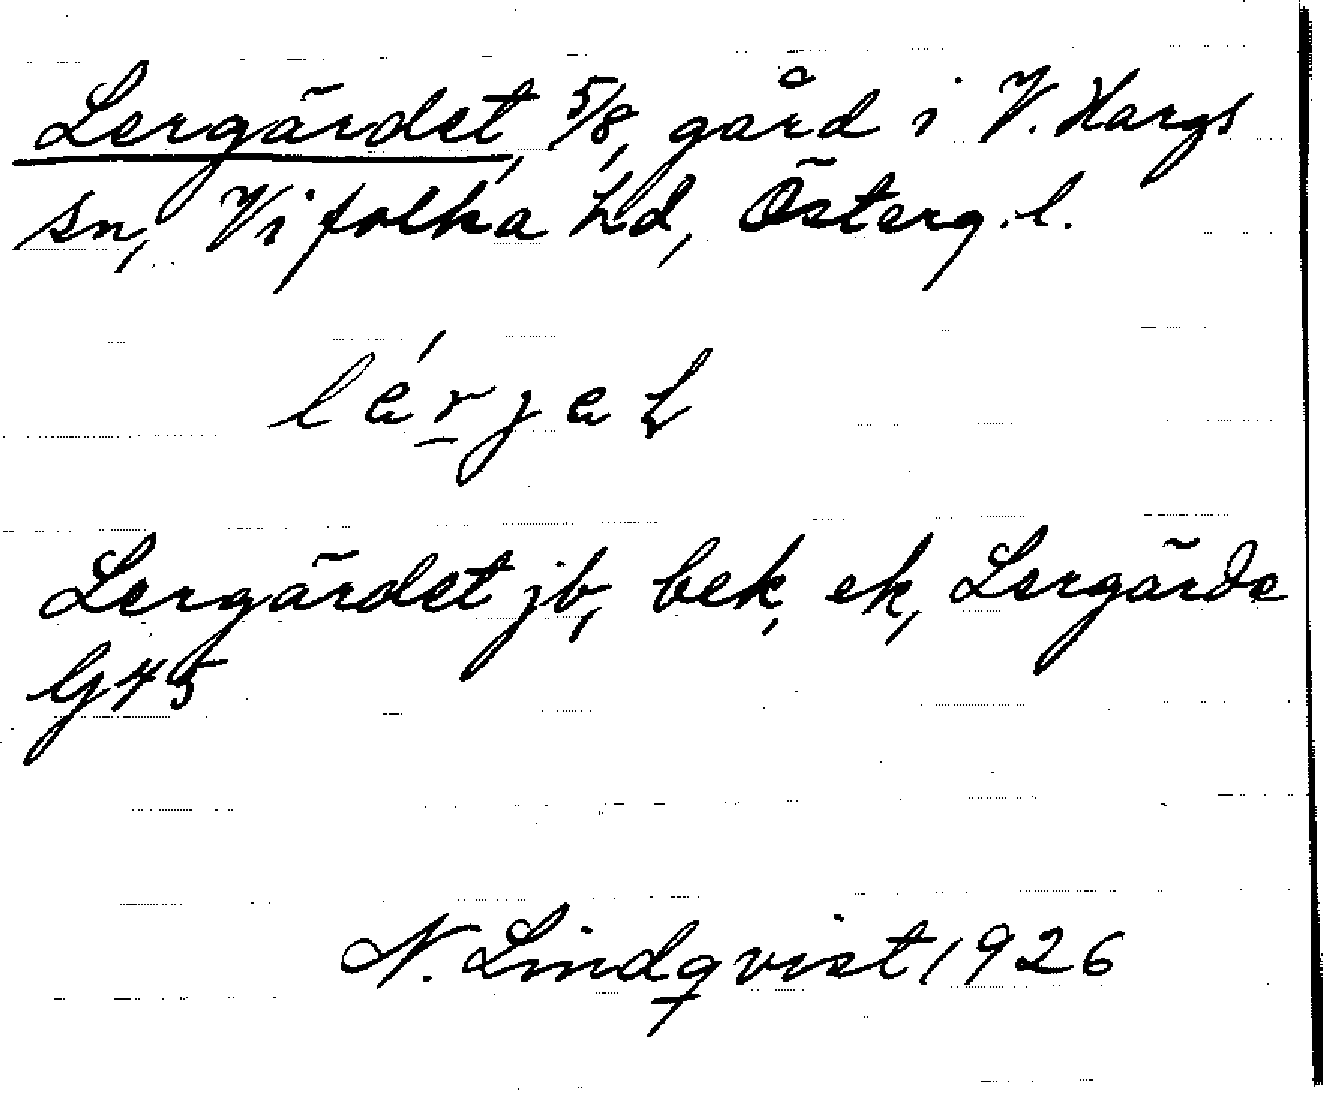 Lergärdet, 5/8, gård i V. Hargs
sn, Vifolka hd, Österg. l.
Lergärdet jb, bek, ek, Lergärde
G 45
N. Lindqvist 1926